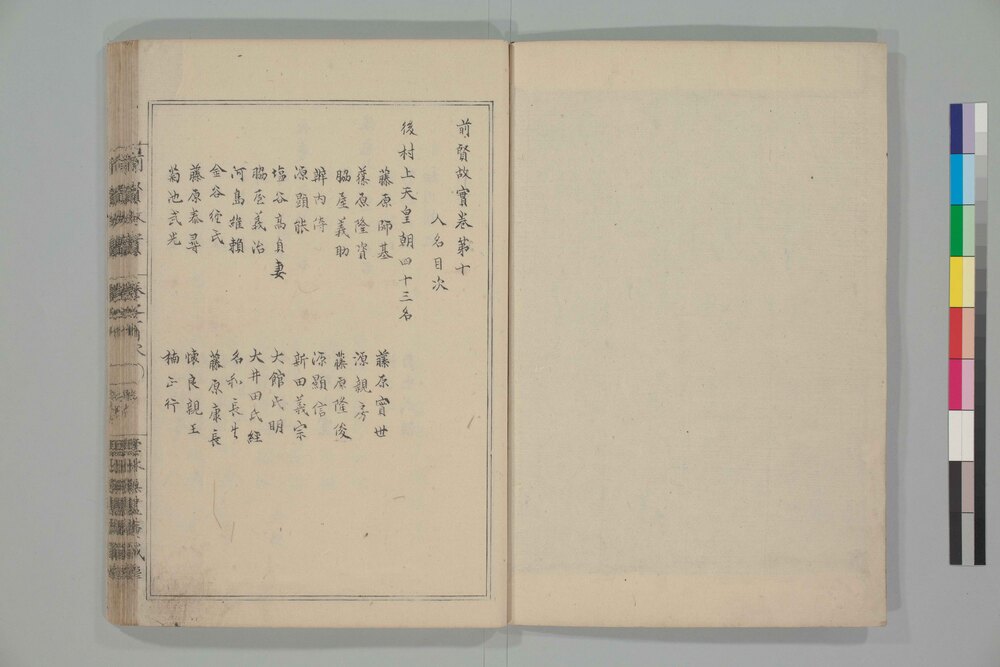 前賢故實巻第十
人名目次
後村上天皇朝四十三名
藤原師基
藤原實世
藤原隆資
源親房
脇屋義助
藤原隆俊
辨内侍
源顕信
源顕能
新田義宗
塩谷高貞妻
大館氏明
脇屋義治
大井田氏経
河島維頼
名和長生
金谷経氏
藤原康長
藤原泰尋
懐良親王
菊池武光
楠正行